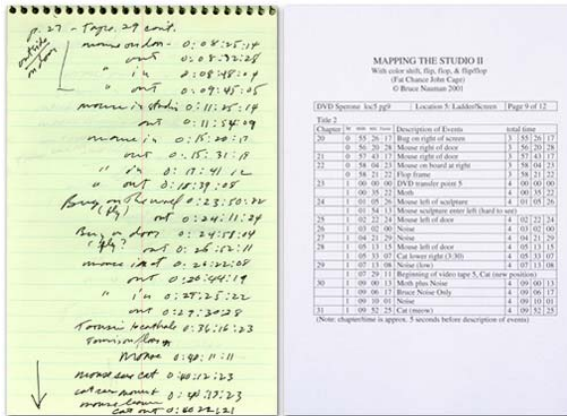 p. 27 - Tape. 29 cont.
outside
on door
mouse on door - 0:08:25:14
out 0:08:32:28
" in 0:08:48:04
" out 0:09:45:05
mouse in studio 0:11:25:14
out 0:11:54:09
mouse in 0:15:20:17
out 0:15:31:18
" in 0:17:41:12
" out 0:18:39:08
Bug on the wall 0:23:50:22
(fly) out 0:24:11:24
Bug on door 0:24:58:04
(fly?) out 0:26:52:11
out 0:26:44:19
" in 0:27:25:22
out 0:29:30:28
0:36:16:23
mouse 0:40:11:11
mouse saw cat 0:40:12:23
cat saw mouse
mouse
cat out 0:40:22:21
MAPPING THE STUDIO II
With color shift, flip, flop, & flip/flop
(Fat Chance John Cage)
© Bruce Nauman 2001
DVD Sperone loc5 pg9 Location 5: Ladder/Screen Page 9 of 12
Title 2
Chapter Description of Events total time
20 0 55 26 17 Bug on right of screen 3 55 26 17
0 56 20 28 Mouse right of door 3 56 20 28
21 0 57 43 17 Mouse right of door 3 57 43 17
22 0 58 04 23 Mouse on board at right 3 58 04 23
0 58 21 22 Flop frame 3 58 21 22
23 1 00 00 00 DVD transfer point 5 4 00 00 00
1 00 35 22 Moth 4 00 35 22
24 1 01 05 26 Mouse left of sculpture 4 01 05 26
1 01 54 13 Mouse sculpture enter left (hard to see)
25 1 02 22 24 Mouse left of door 4 02 22 24
26 1 03 02 00 Noise 4 03 02 00
27 1 04 21 29 Noise 4 04 21 29
28 1 05 13 15 Mouse left of door 4 05 13 15
1 05 33 07 Cat lower right (3:30) 4 05 33 07
29 1 07 13 08 Noise (low) 4 07 13 08
1 07 29 11 Beginning of video tape 5, Cat (new position)
30 1 09 00 13 Moth plus Noise 4 09 00 13
1 09 06 17 Bruce Noise Only 4 09 06 17
1 09 10 01 Noise 4 09 10 01
31 1 09 52 25 Cat (meow) 4 09 52 25
(Note: chapter/time is approx. 5 seconds before description of events)